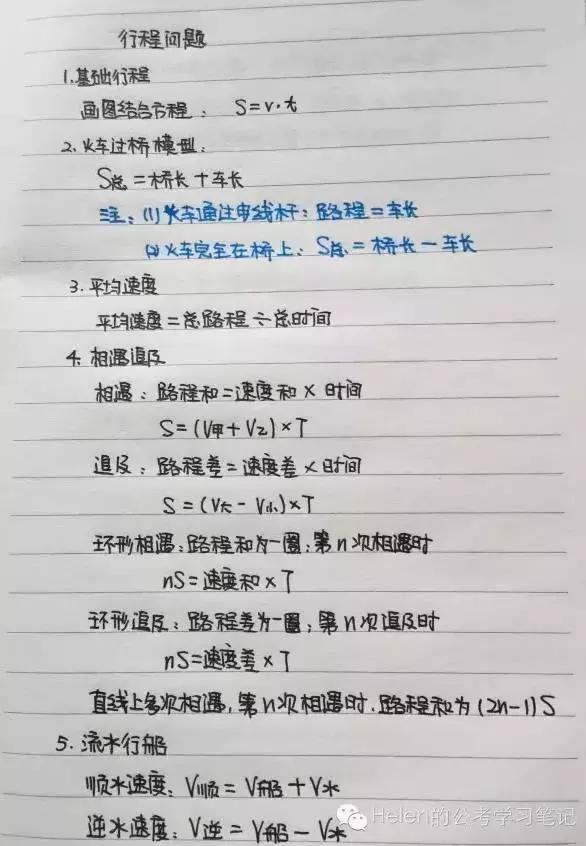 行程问题
1.基础行程
画图结合方程： S=v·t
2.火车过桥模型：
S总=桥长+车长
注：(1)火车通过电线杆：路程=车长
(2)火车完全在桥上：S总=桥长-车长
3.平均速度
平均速度=总路程÷总时间
4.相遇追及
相遇：路程和=速度和×时间
S=(V甲+V乙)×T
追及：路程差=速度差×时间
S=(V大-V小)×T
环形相遇：路程和为一圈；第n次相遇时
nS=速度和×T
环形追及：路程差为一圈；第n次追及时
nS=速度差×T
直线上多次相遇，第n次相遇时，路程和为(2n-1)S
5.流水行船
顺水速度：V顺=V船+V水
逆水速度：V逆=V船-V水
Helen的公考学习笔记